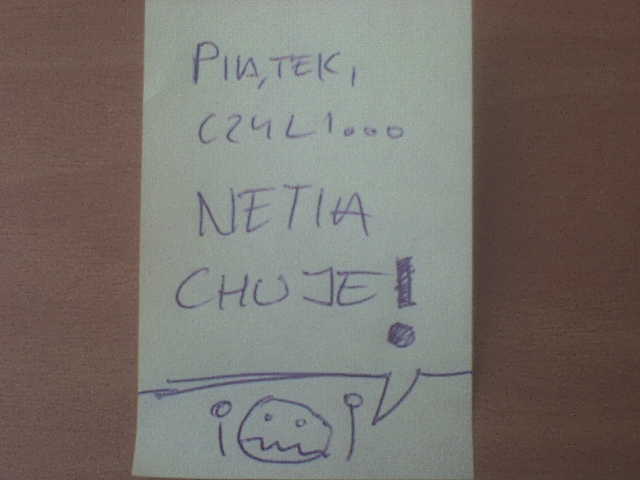 PIĄTEK,
CZYLI...
NETIA
CHUJE!